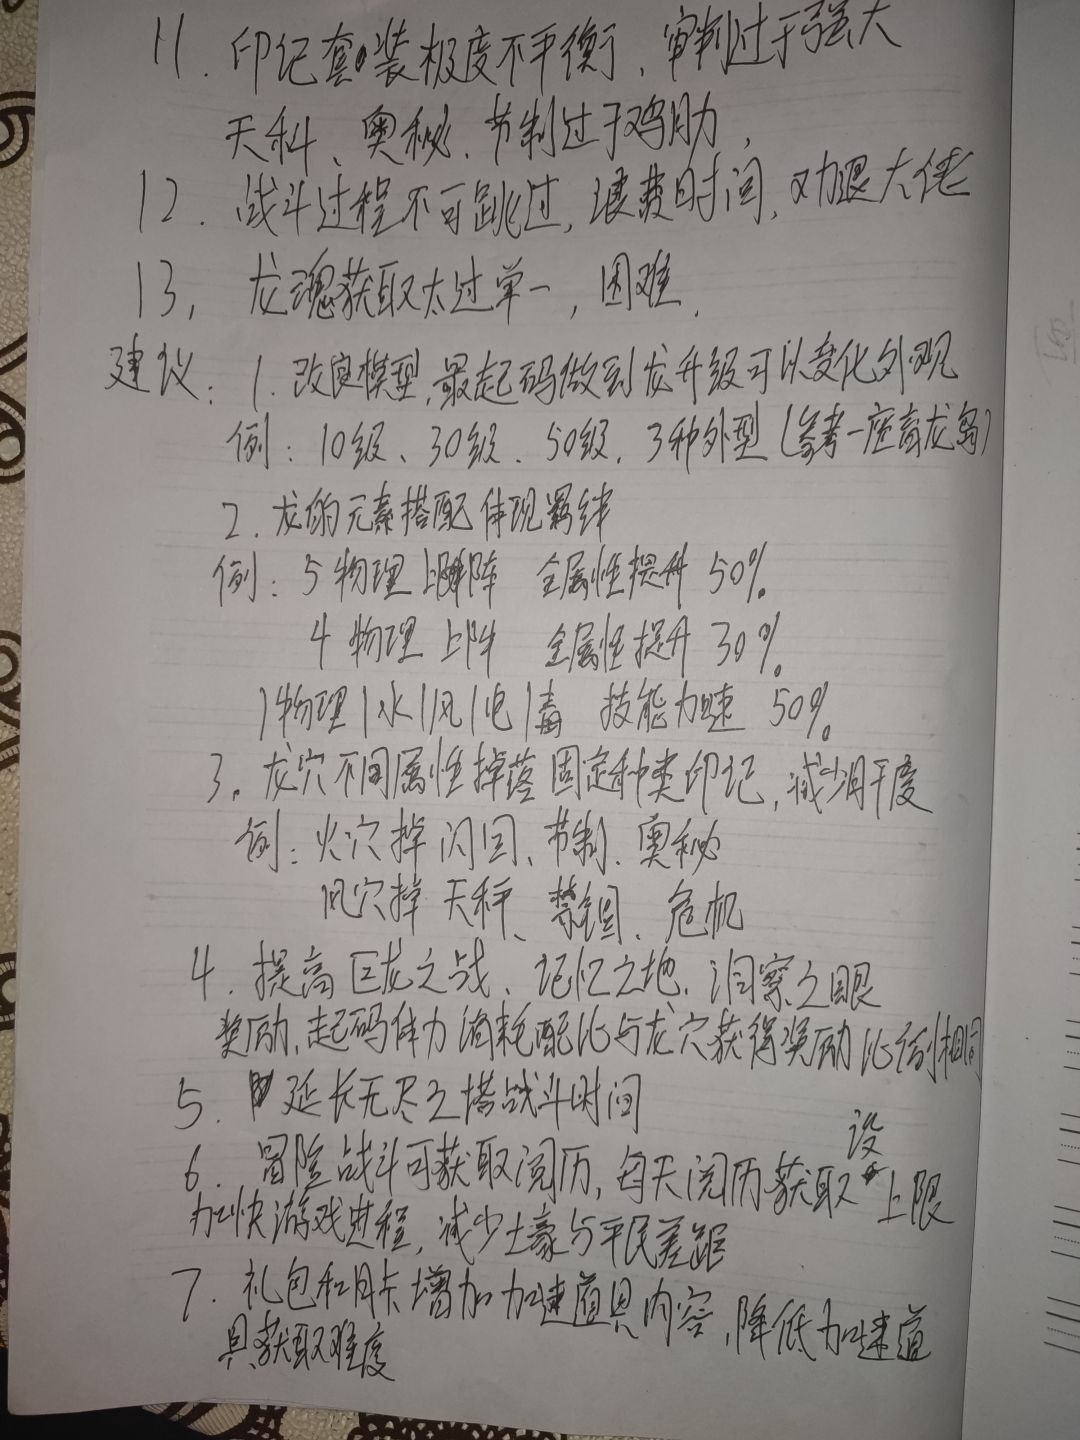 11. 印记套装极度不平衡、审判过于强大
天秤、奥秘、节制过于鸡肋,
12. 战斗过程不可跳过, 浪费时间, 劝退大佬
13, 龙魂获取太过单一, 困难.
建议: 1. 改良模型, 最起码做到龙升级可以变化外观
例: 10级、30级、50级, 3种外型 (参考一座高龙岛)
2. 龙的元素搭配体现羁绊
例: 5物理上阵 全属性提升 50%
4物理上阵 全属性提升 30%
1物理1水1风1电1毒 技能加速 50%
3. 龙穴不同属性掉落固定种类印记, 减少肝度
例: 火穴掉 闪回、节制、奥秘
风穴掉 天秤、禁锢、危机
4. 提高巨龙之战、记忆之地、洞察之眼
奖励, 起码体力消耗配比与龙穴获得奖励比例相同
5. 延长无尽之塔战斗时间
6. 冒险战斗可获取阅历, 每天阅历获取设上限
加快游戏进程, 减少土豪与平民差距
7. 礼包和月卡增加加速道具内容, 降低加速道
具获取难度